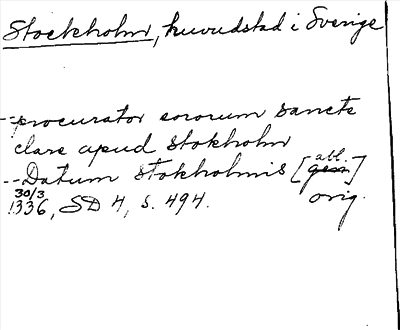 Stockholm, huvudstad i Sverige
--procurator sororum sancte
clare apud stokholm
--Datum stokholmis [gen abl.]
30/3
1336, SD 4, s. 494. orig.